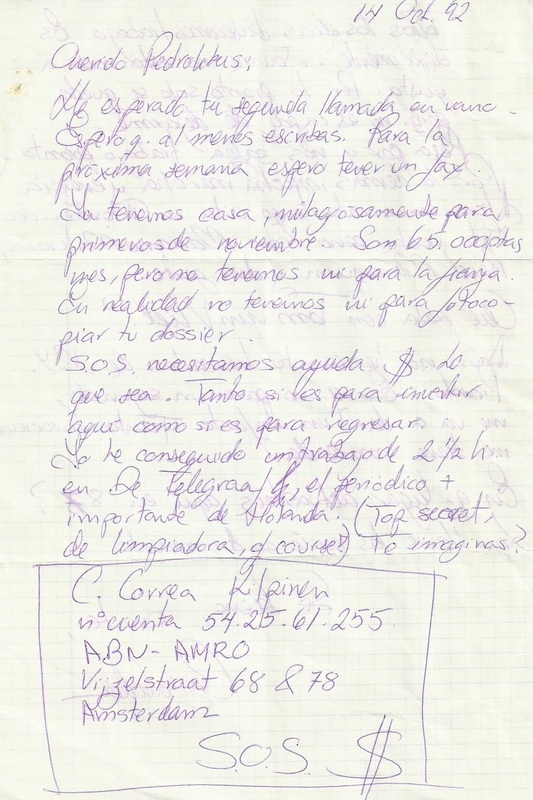 14 Oct. 92
Querido Pedroletus;
He esperado tu segunda llamada en vano.
Espero q. al menos escribas. Para la
próxima semana espero tener un fax.
Ya tenemos casa, milagrosamente para
primeros de noviembre. Son 65.000ptas
mes, pero no tenemos ni para la fianza.
En realidad no tenemos ni para fotoco-
piar tu dossier.
S.O.S. necesitamos ayuda $ Lo
que sea. Tanto si es para invertir
aquí como si es para regresar.
Yo he conseguido un trabajo de 2 1/2 h
en De Telegraaf, el periódico +
importante de Holanda. (Top secret,
de limpiadora, of course!) Te imaginas?
C. Correa Kilpinen
nº cuenta 54.25.61.255
ABN-AMRO
Vijzelstraat 68 & 78
Amsterdam
S.O.S. $